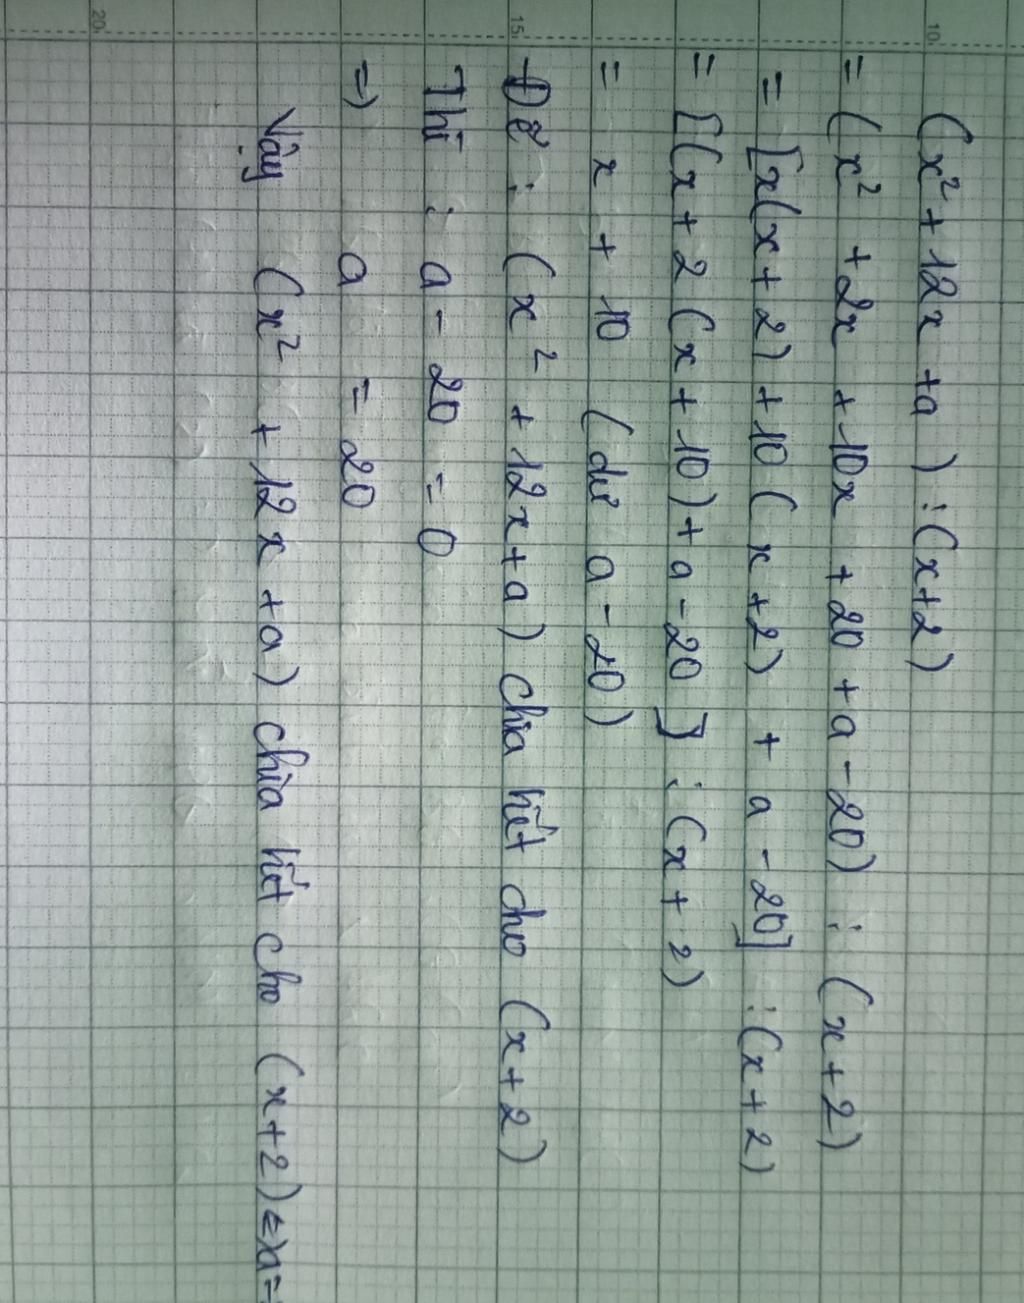 (x² + 12x + a) : (x+2)
= (x² + 2x + 10x + 20 + a - 20) : (x+2)
= [x(x+2) + 10(x+2) + a - 20] : (x+2)
= [(x+2(x+10) + a - 20] : (x+2)
= x + 10 (dư a - 20)
Để : (x² + 12x + a) chia hết cho (x+2)
Thì : a - 20 = 0
=> a = 20
Vậy (x² + 12x + a) chia hết cho (x+2) <=> a =
10
15
20